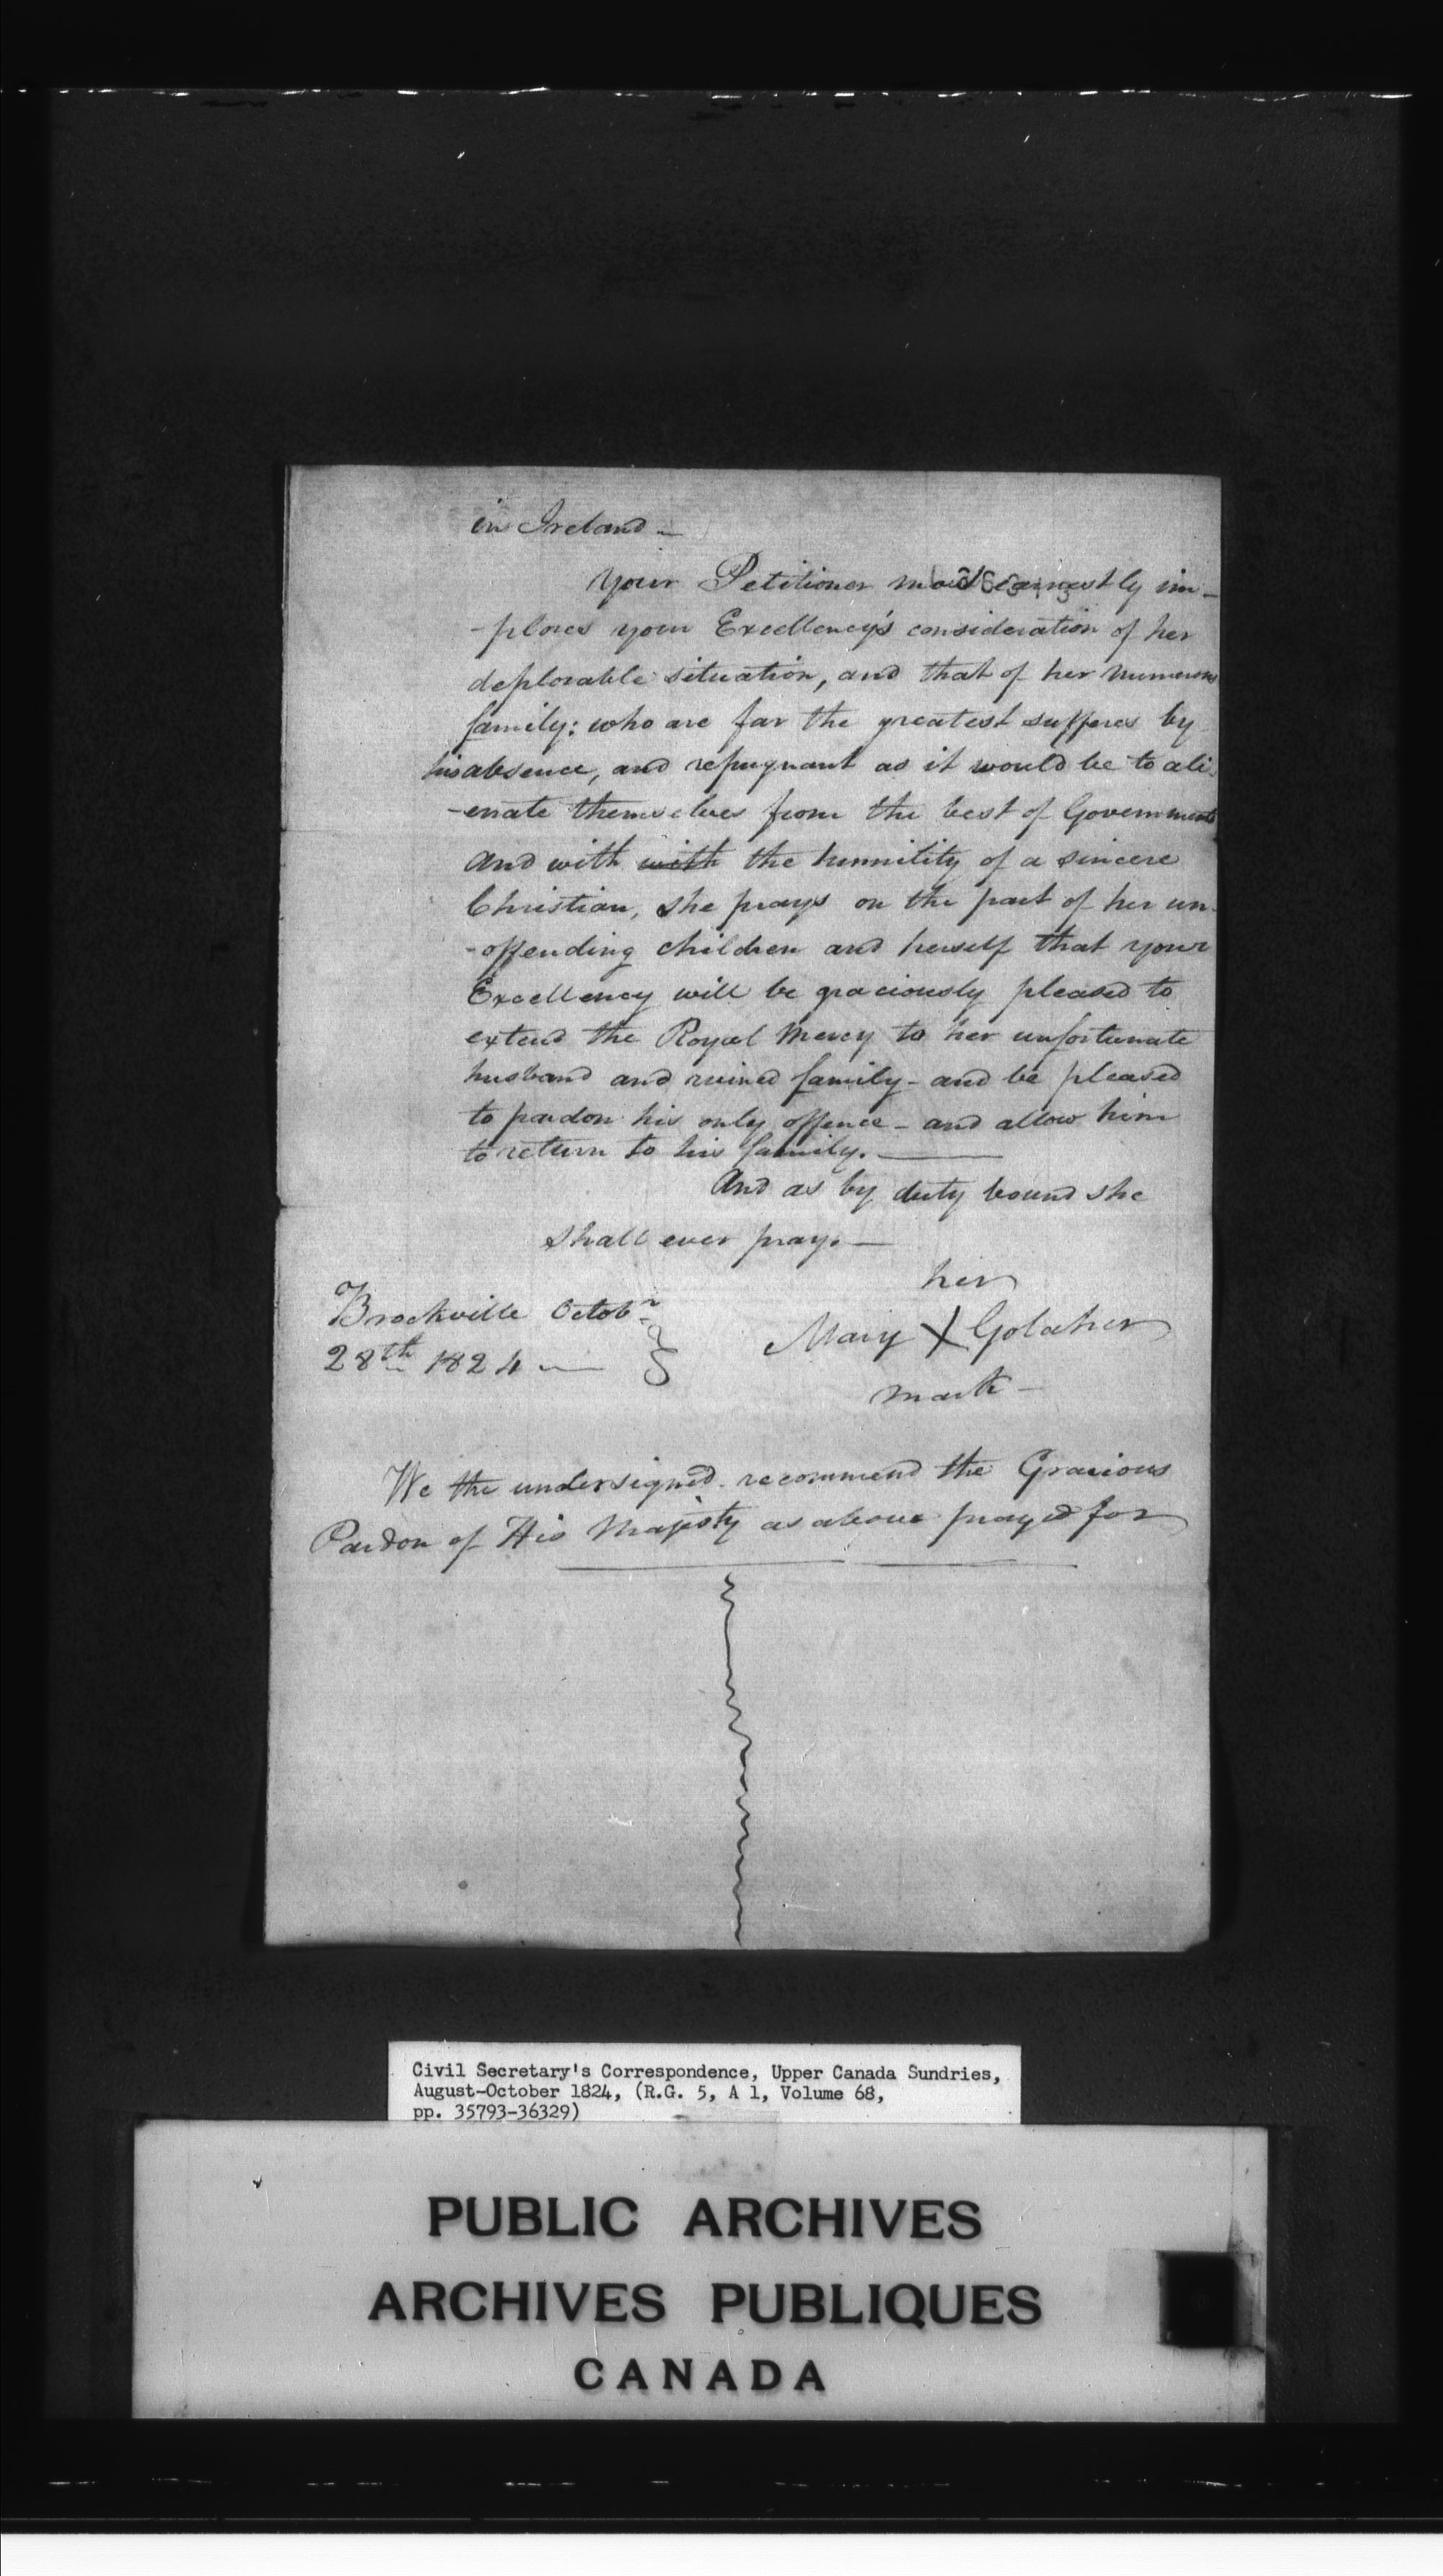 in Ireland —
Your Petitioner most earnestly im-
-plores your Excellency's consideration of her
deplorable situation, and that of her numerous
family: who are far the greatest sufferes by
his absence, and repugnant as it would be to ali-
-enate themselves from the best of Governments
And with with the humility of a sincere
Christian, she prays on the part of her un-
-offending children and herself that your
Excellency will be graciously pleased to
extend the Royal Mercy to her unfortunate
husband and ruined family - and be pleased
to pardon his only offence - and allow him
to return to his family. —
And as by duty bound she
shall ever pray. —
her
Brockville Octobr
Mary X Golaher
28th 1824 —
mark —
We the undersigned recommend the Gracious
Pardon of His Majesty as above prayed for
Civil Secretary's Correspondence, Upper Canada Sundries,
August-October 1824, (R.G. 5, A 1, Volume 68,
pp. 35793-36329)
PUBLIC ARCHIVES
ARCHIVES PUBLIQUES
CANADA